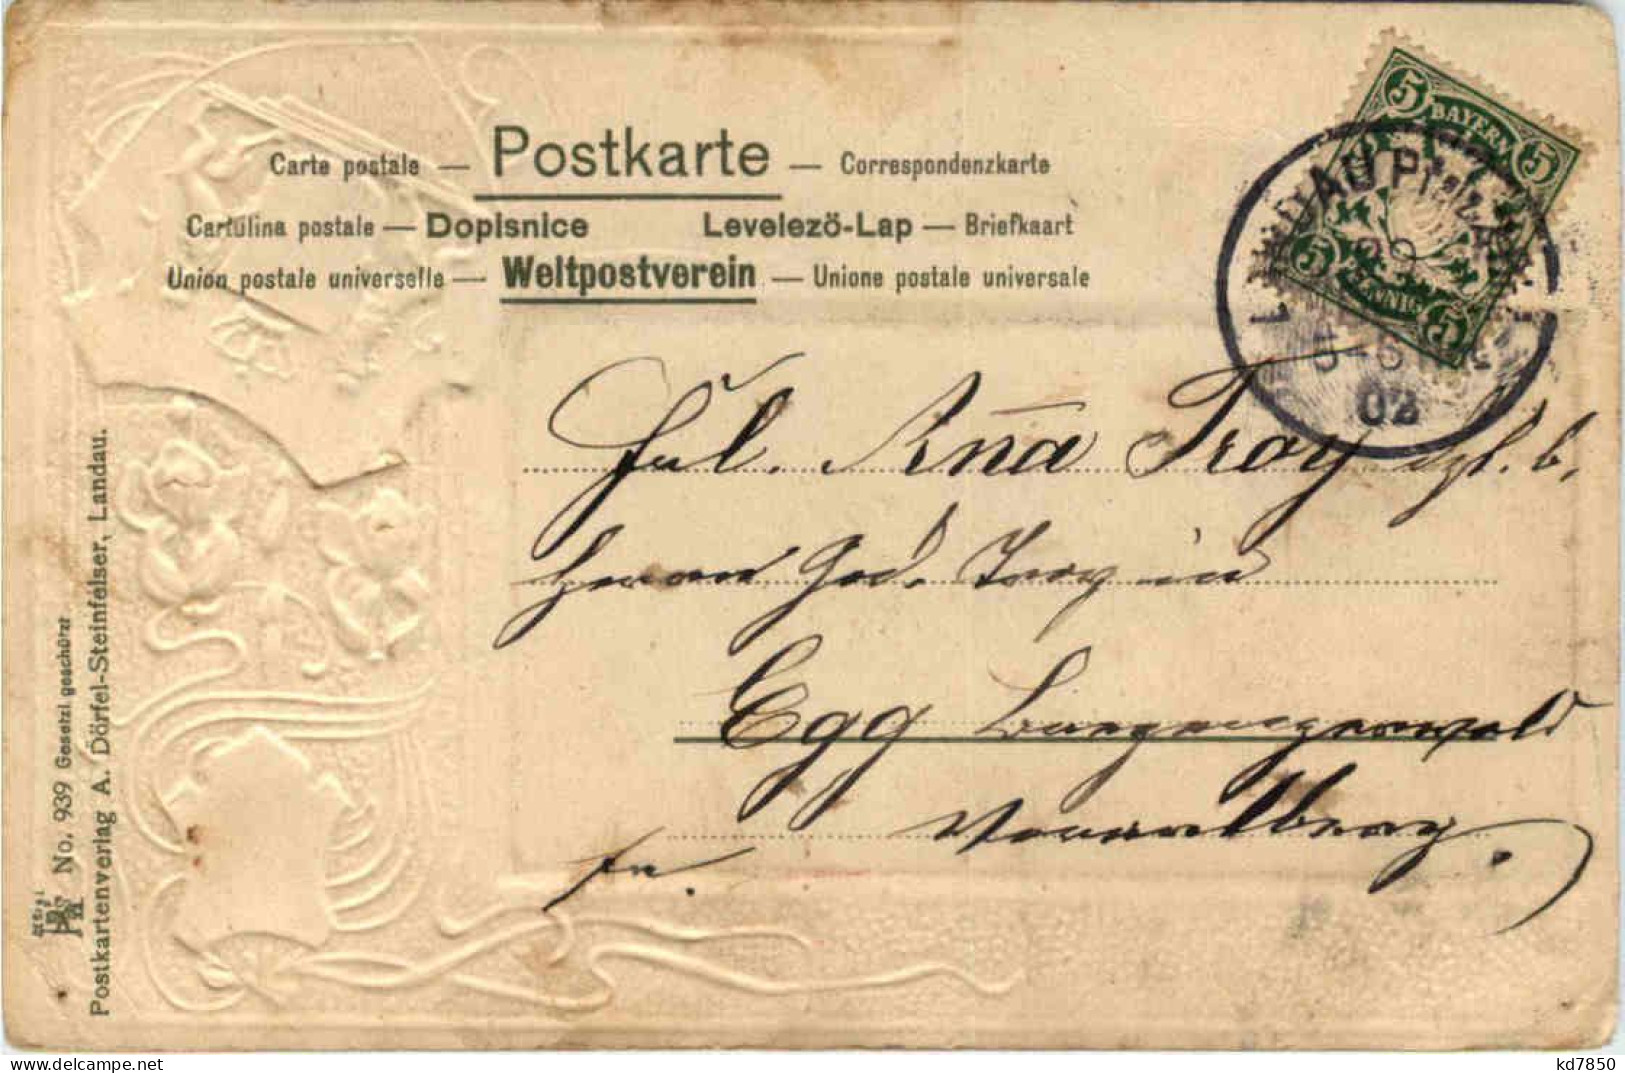 Carte postale — Postkarte — Correspondenzkarte
Cartolina postale — Dopisnice Levelezö-Lap — Briefkaart
Union postale universelle — Weltpostverein — Unione postale universale
5 BAYERN 5
5 PFENNIG 5
LANDAU PFALZ
5-6
02
Frl. Ana Troy
Herrn Troy in
Egg
Vorarlberg.
No. 939 Gesetzl. geschützt
Postkartenverlag A. Dörfel-Steinfelser, Landau.
kd7850